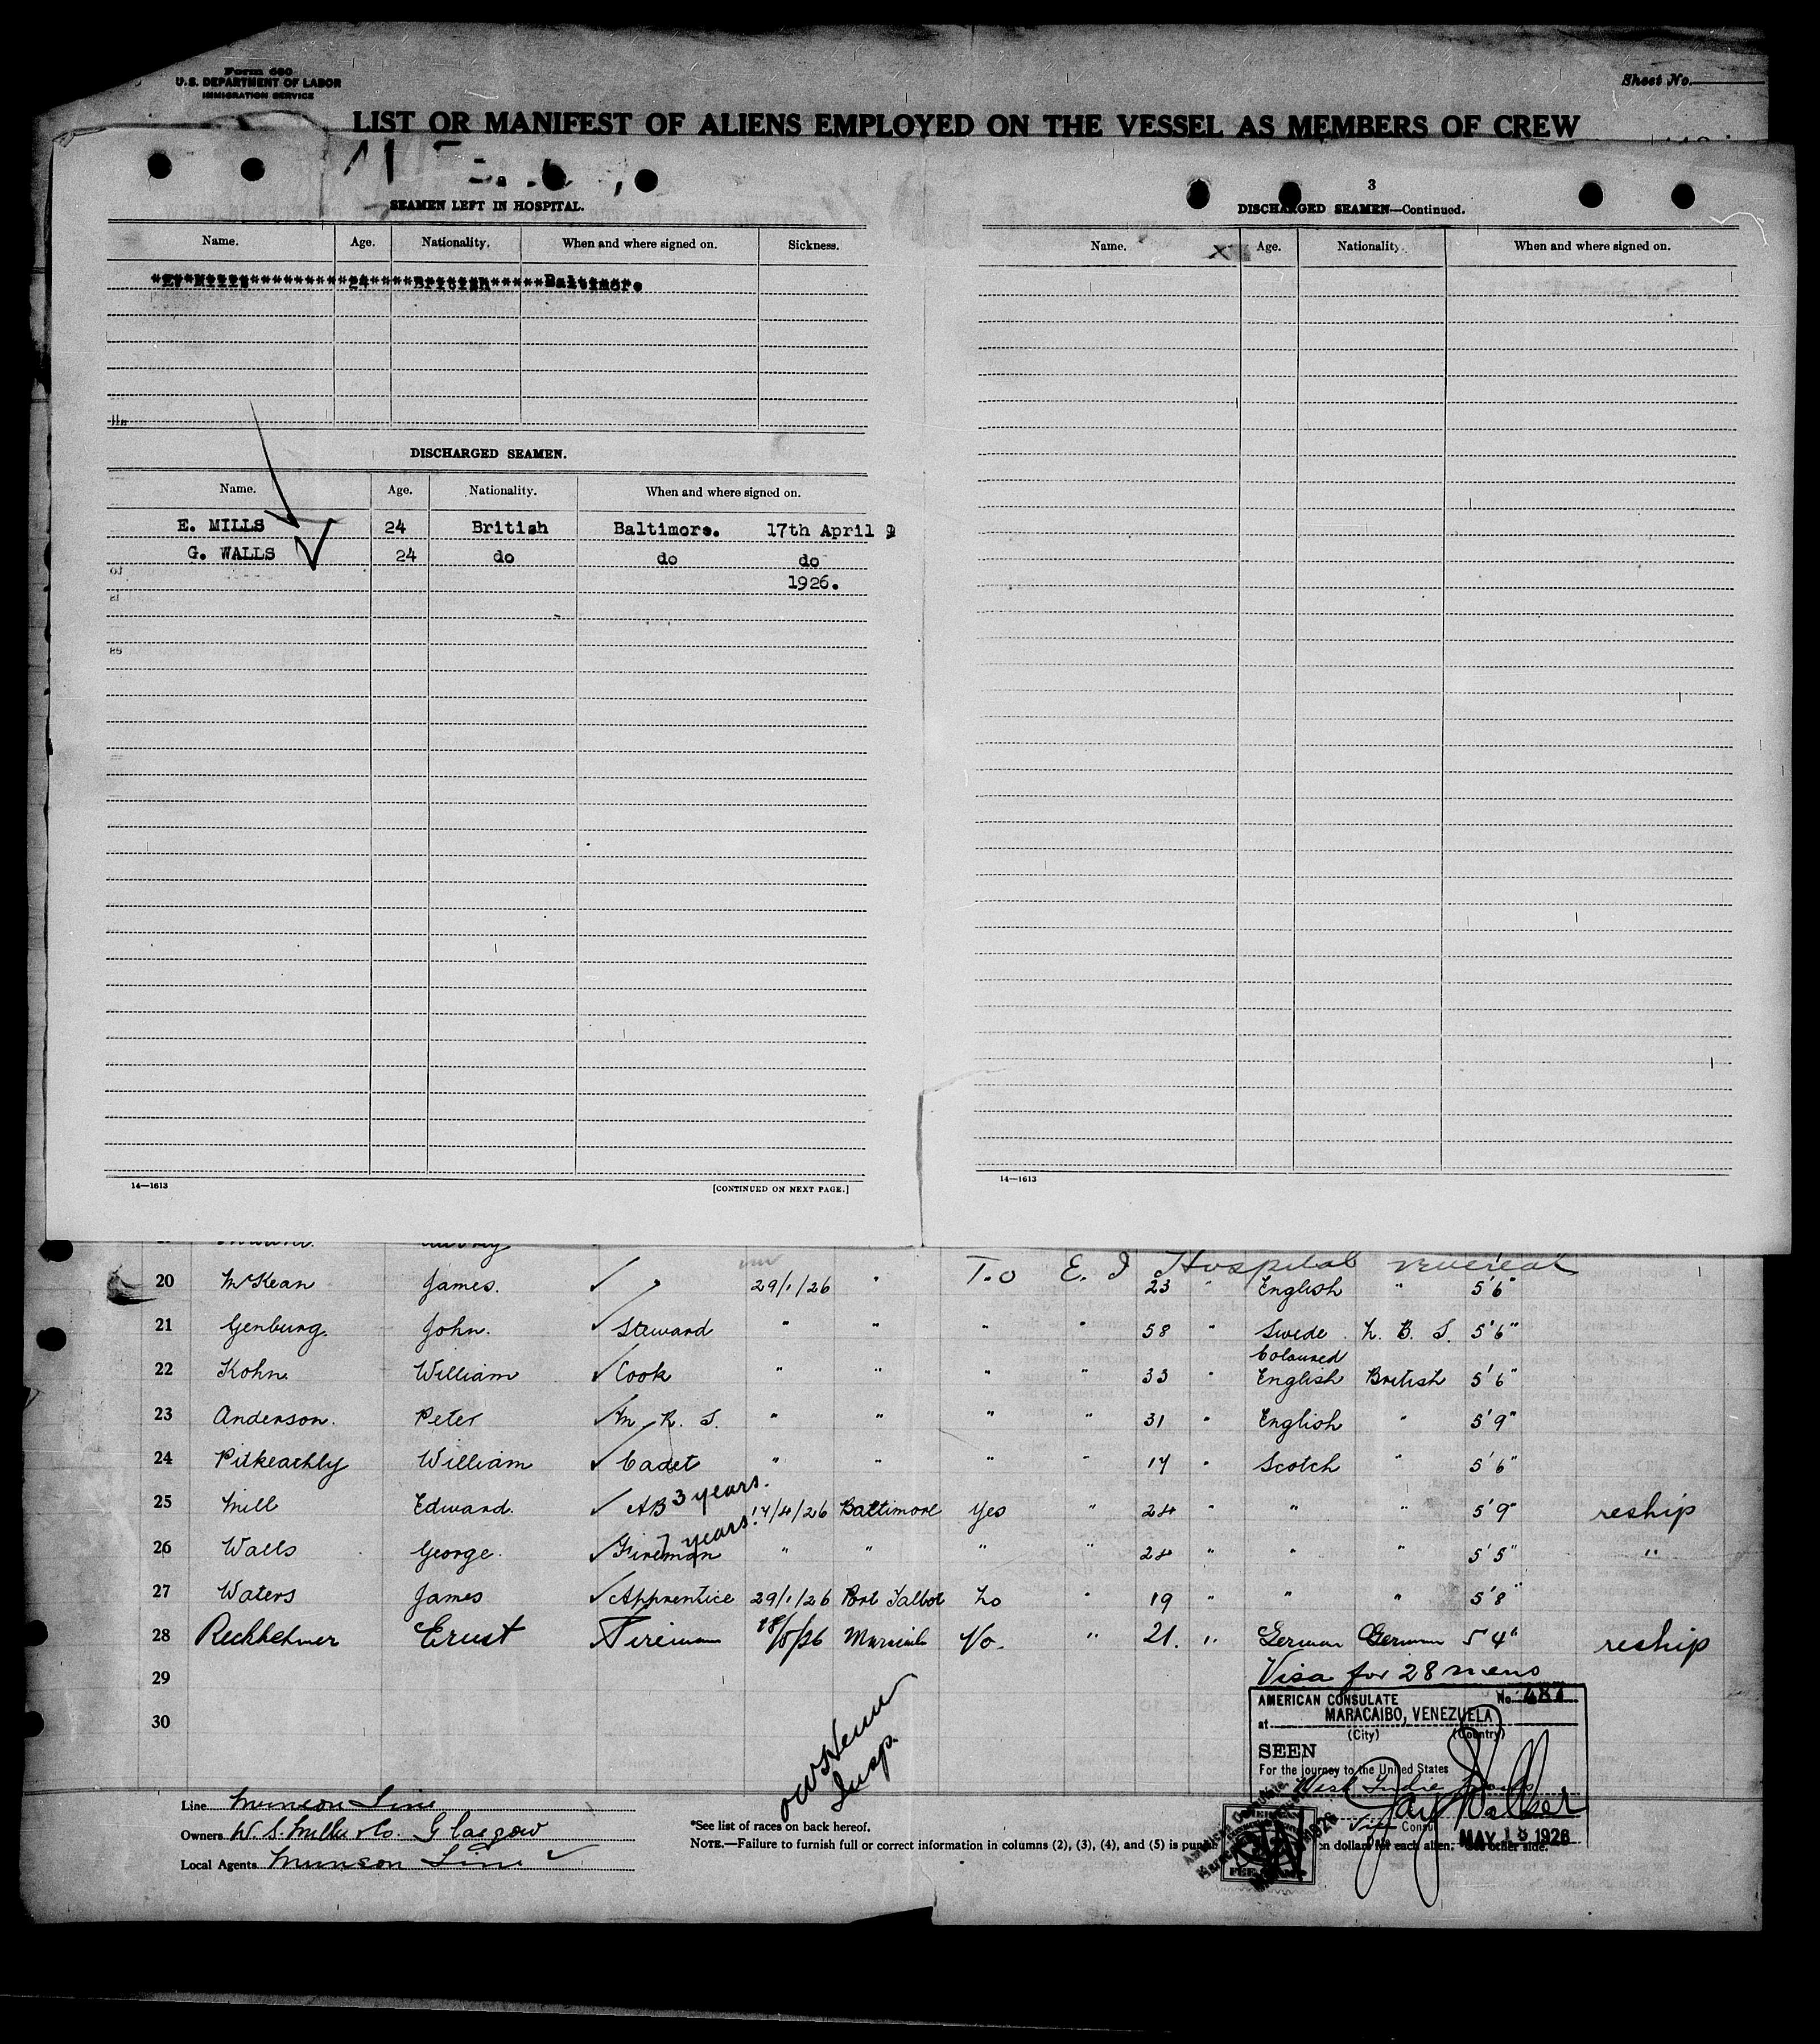 Form 680
U.S. DEPARTMENT OF LABOR
IMMIGRATION SERVICE
Sheet No.
LIST OR MANIFEST OF ALIENS EMPLOYED ON THE VESSEL AS MEMBERS OF CREW
SEAMEN LEFT IN HOSPITAL.
Name. Age. Nationality. When and where signed on. Sickness.
24 British Baltimore
DISCHARGED SEAMEN.
Name. Age. Nationality. When and where signed on.
E. MILLS 24 British Baltimore. 17th April
G. WALLS 24 do do do
1926.
14—1613 [CONTINUED ON NEXT PAGE.]
3
DISCHARGED SEAMEN—Continued.
Name. Age. Nationality. When and where signed on.
14—1613
To E. I Hospital
20 McKean James. " 29/1/26 " 23 " English " 5'6"
21 Genburg. John. Steward " " " " 58 " Swede. U. B. S. 5'6"
Coloured
22 Kohn William Cook " " " " 33 " English British 5'6"
23 Anderson. Peter M. R. S. " " " " 31 " English " 5'9"
24 Pitkeathly William Cadet " " " " 17 " Scotch " 5'6"
25 Mill Edward. AB 3 years. 17/4/26 Baltimore Yes " 24 " " " 5'9" reship
26 Walls George. Fireman 7 years. " " " " 24 " " " 5'5" "
27 Waters James Apprentice 29/1/26 Port Talbot No " 19 " " " 5'8"
28 Ernst Fireman 18/5/26 No. " 21. " German German 5'4" reship
Visa for 28 mens
29
30
AMERICAN CONSULATE No. 487
at MARACAIBO, VENEZUELA
(City) (Country)
SEEN
For the journey to the United States
Jay Walker
Vice Consul
MAY 18 1926
Insp.
Line Munson Line
Owners W. S. Miller & Co. Glasgow
Local Agents Munson Line
*See list of races on back hereof.
NOTE.—Failure to furnish full or correct information in columns (2), (3), (4), and (5) is dollars for each alien. See other side.